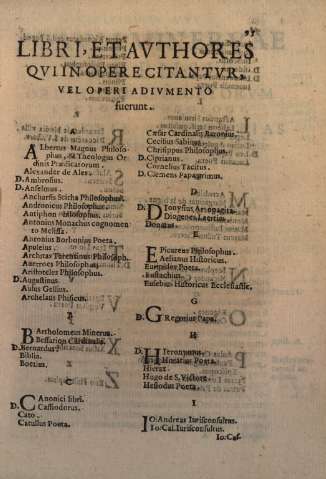 LIBRI, ET AVTHORES
QVI IN OPERE CITANTVR,
VEL OPERI ADIVMENTO
fuerunt.
A
Albertus Magnus Philosophus, & Theologus Ordinis Prædicatorum.
Alexander de Ales.
D. Ambrosius.
D. Anselmus.
Ancharsis Scitha Philosophus.
Andronicus Philosophus.
Antiphon Philosophus.
Antonius Monachus cognomento Melissa.
Antonius Borbonius Poeta.
Apuleius
Architas Tarentinus Philosoph.
Auerroes Philosophus.
Aristoteles Philosophus.
D. Augustinus.
Aulus Gellius.
Archelaus Phisicus.
B
Bartholomeus Minerus.
Bessarion Cardinalis.
D. Bernardus.
Biblia.
Boetius.
C
D. Canonici libri.
Cassiodorus.
Cato.
Catullus Poeta.
Cæsar Cardinalis Baronius.
Cecilius Sabinus
Chrisippus Philosophus.
D. Ciprianus.
Cornelius Tacitus.
D. Clemens Papa primus.
D
D. Dionysius Ariopagita.
Diogenes Laertius.
Donatus.
E
Epicurus Philosophus.
Aelianus Historicus.
Euripides Poeta.
Eustachius.
Eusebius Historicus Ecclesiastic.
G
D. Gregorius Papa.
H
D. Hieronymus.
Horatius Poeta.
Hierax
Hugo de S. Victore
Hesiodus Poeta.
I
Io: Andreas Iurisconsultus.
Io: Cal. Iurisconsultus.
Io: Cas.